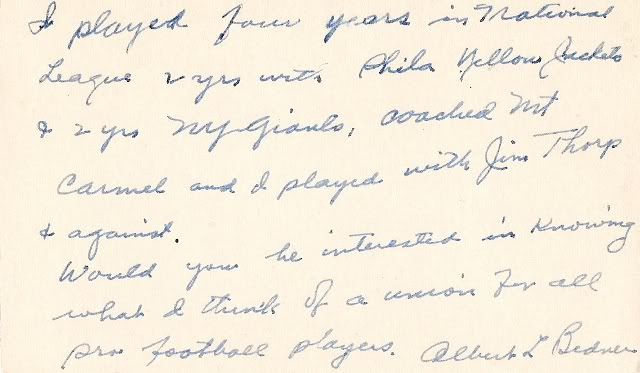 I played four years in National
League 2 yrs with Phila Yellow Jackets
& 2 yrs NY Giants, coached Mt
Carmel and I played with Jim Thorp
& against.
Would you be interested in Knowing
what I think of a union for all
pro football players. Albert L Bedner